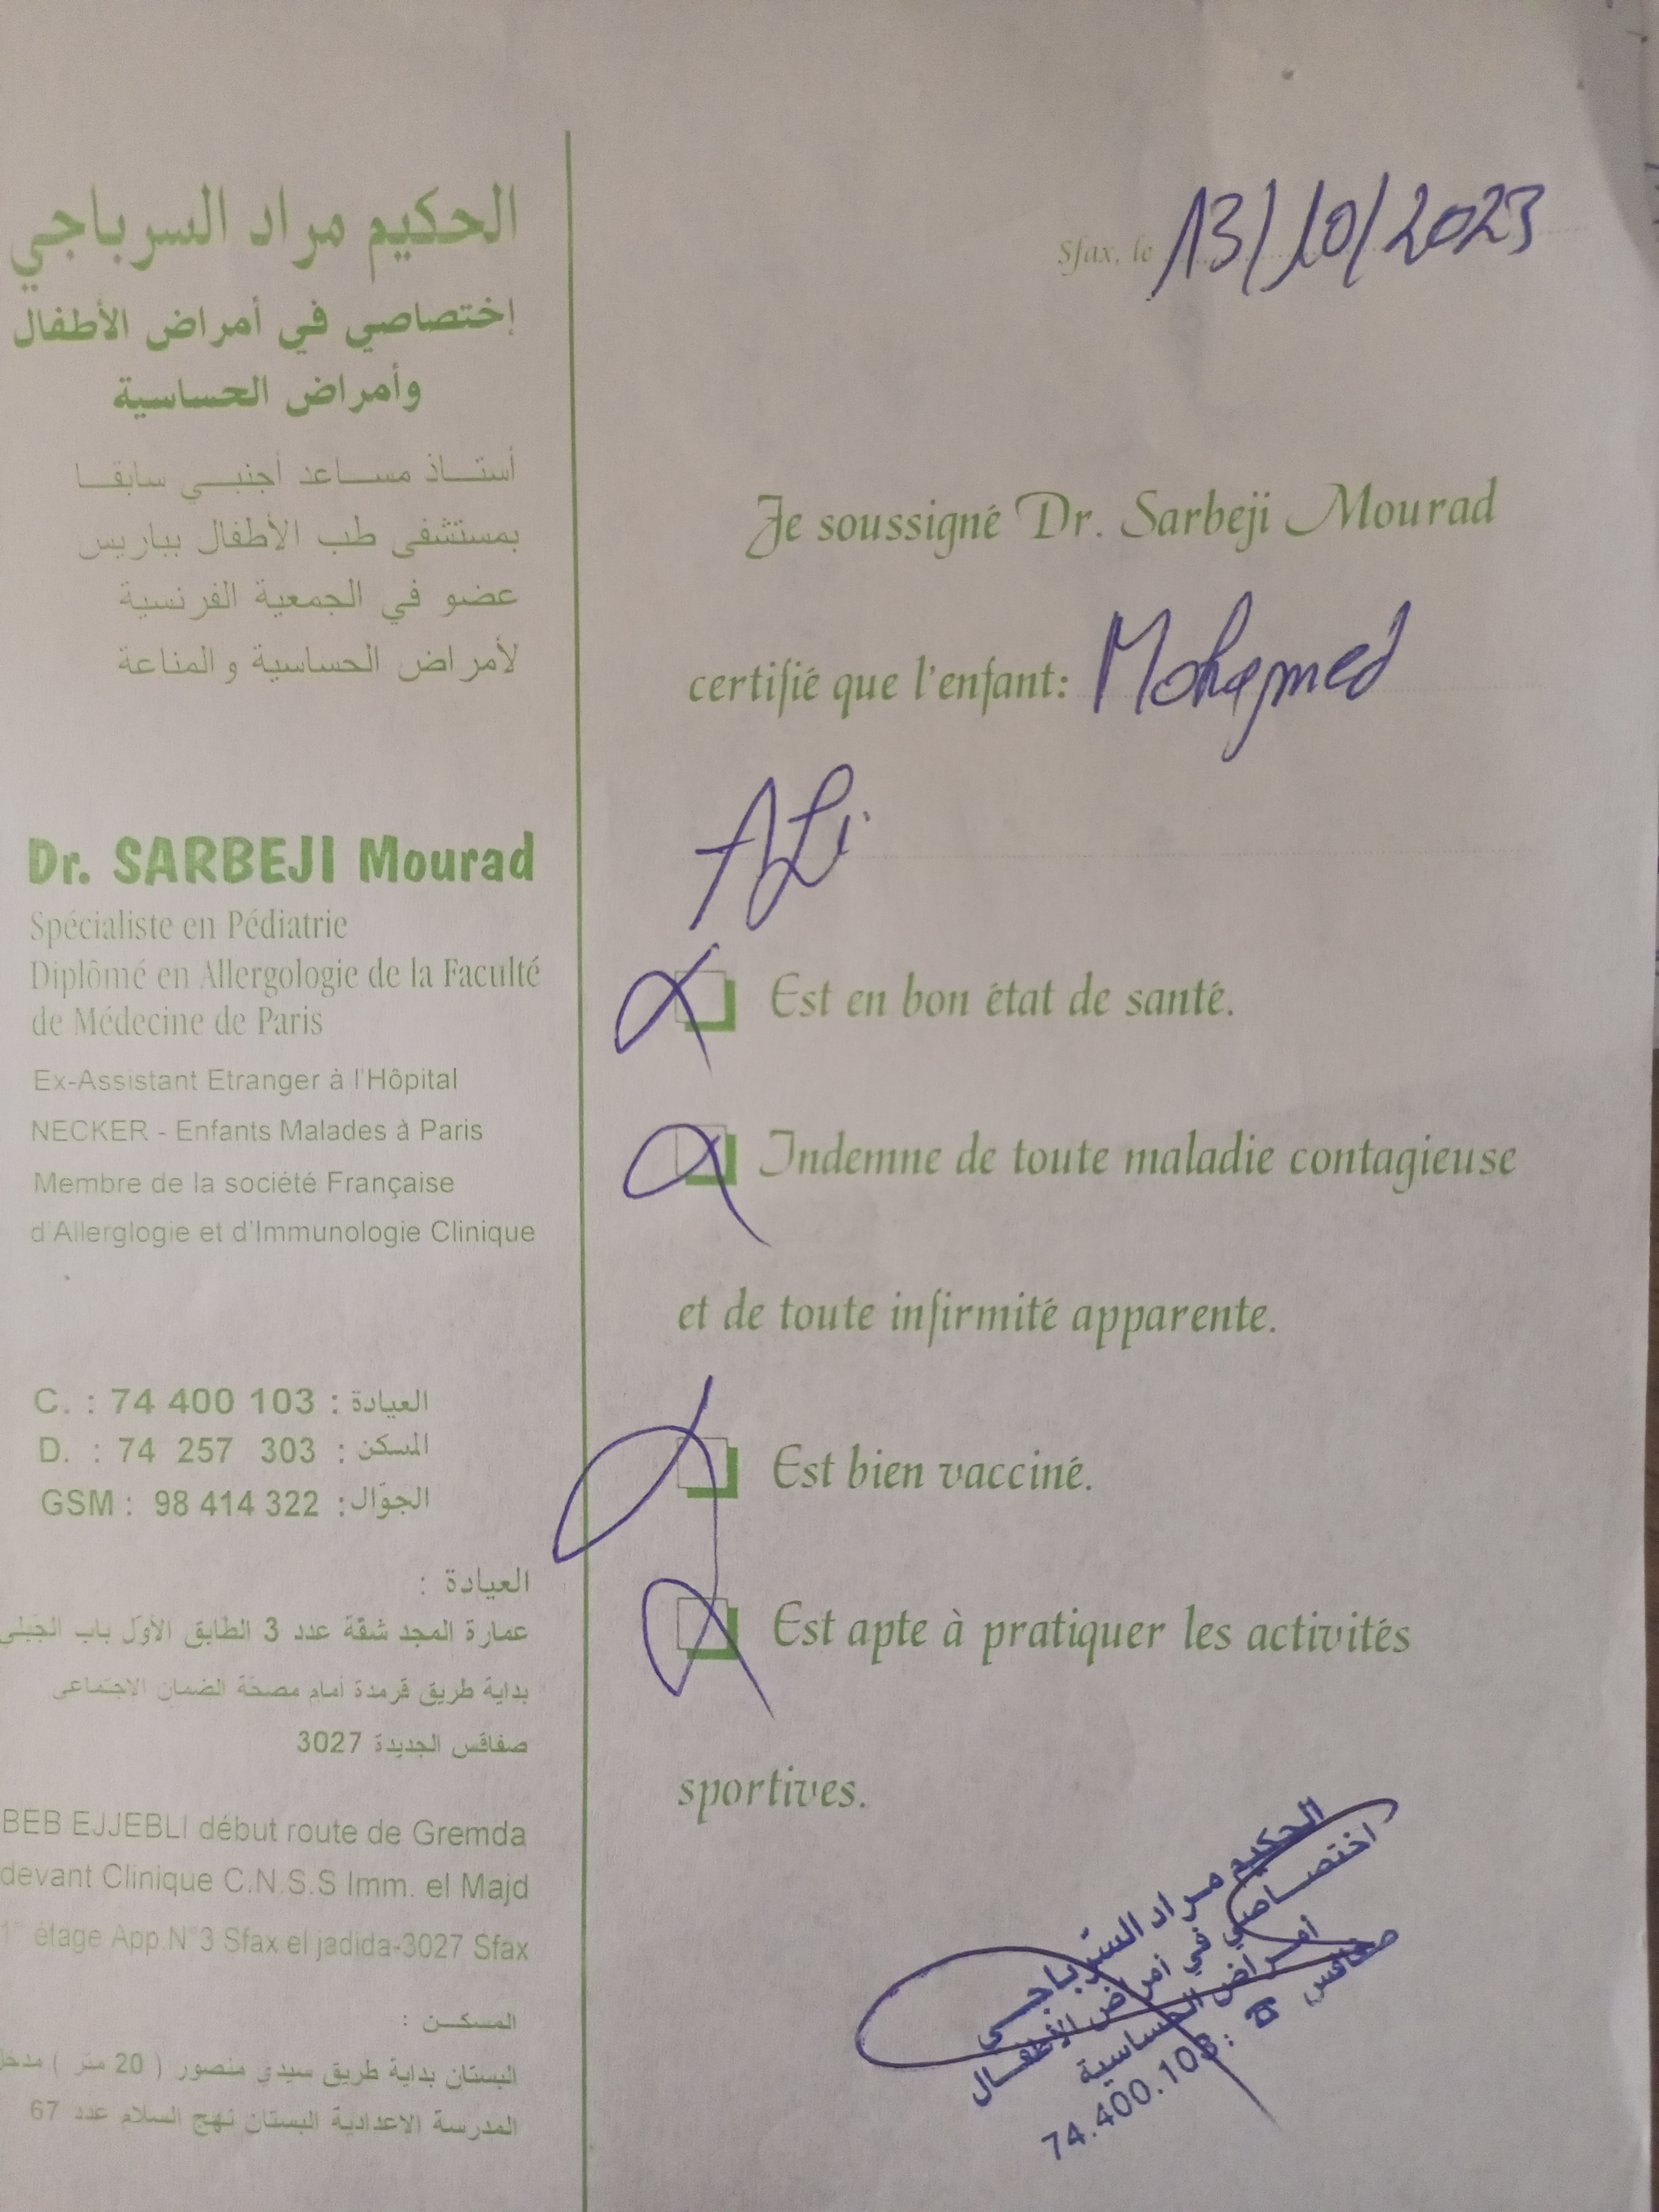 الحكيم مراد السرباجي
إختصاصي في أمراض الأطفال
وأمراض الحساسية
أستاذ مساعد أجنبي سابقا
بمستشفى طب الأطفال بباريس
عضو في الجمعية الفرنسية
لأمراض الحساسية والمناعة
Dr. SARBEJI Mourad
Spécialiste en Pédiatrie
Diplômé en Allergologie de la Faculté
de Médecine de Paris
Ex-Assistant Etranger à l'Hôpital
NECKER - Enfants Malades à Paris
Membre de la société Française
d'Allerglogie et d'Immunologie Clinique
C. : 74 400 103 : العيادة
D. : 74 257 303 : المسكن
GSM : 98 414 322 : الجوّال
العيادة :
عمارة المجد شقة عدد 3 الطابق الأوّل باب الجبلي
بداية طريق قرمدة أمام مصحة الضمان الاجتماعي
صفاقس الجديدة 3027
BEB EJJEBLI début route de Gremda
devant Clinique C.N.S.S Imm. el Majd
1er étage App.N°3 Sfax el jadida-3027 Sfax
المسكن :
البستان بداية طريق سيدي منصور ( 20 متر ) مدخل
المدرسة الاعدادية البستان نهج السلام عدد 67
Sfax, le 13/10/2023
Je soussigné Dr. Sarbeji Mourad
certifié que l'enfant: Mohamed
Ali
Est en bon état de santé.
Indemne de toute maladie contagieuse
et de toute infirmité apparente.
Est bien vacciné.
Est apte à pratiquer les activités
sportives.
الحكيم مراد السّرباجي
اختصاصي في أمراض الأطفال
أمراض الحساسية
صفاقس ☎ : 74.400.103